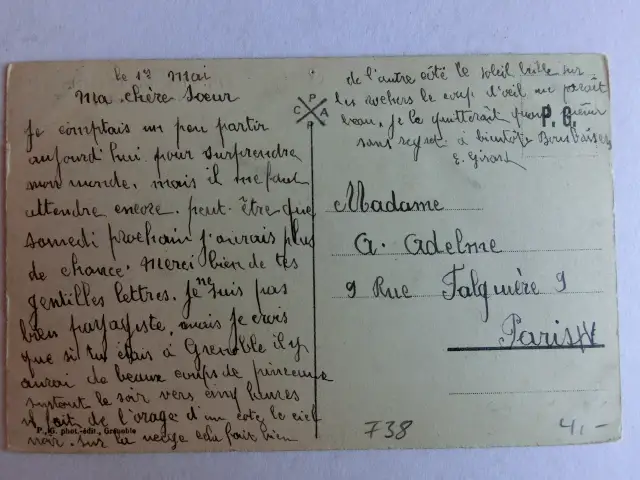 le 17 Mai
Ma chère Soeur
Je comptais un peu partir
aujourd'hui pour surprendre
mon monde, mais il me faut
attendre encore. peut-être que
samedi prochain j'aurais plus
de chance. Merci bien de tes
gentilles lettres. Je ne suis pas
bien paysagiste, mais je crois
que si tu étais à Grenoble il y
aurai de beaux coups de pinceaux
surtout le soir vers cinq heures
il fait de l'orage d'un côté le ciel
noir. sur la neige cela fait bien
P. G. phot.-édit., Grenoble
C P A
de l'autre côté le soleil brille sur
les rochers le coup d'oeil me paraît
beau. Je la quitterait quand même
sans regret. à bientôt Bons baisers
E. Girard
P. G.
Madame
A. Adelme
9 Rue Falguière 9
Paris XV
738
4,-